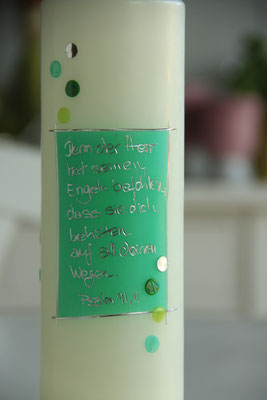 Denn der Herr
hat seinen
Engeln befohlen,
dass sie dich
behüten
auf all deinen
Wegen.
Psalm 91,11